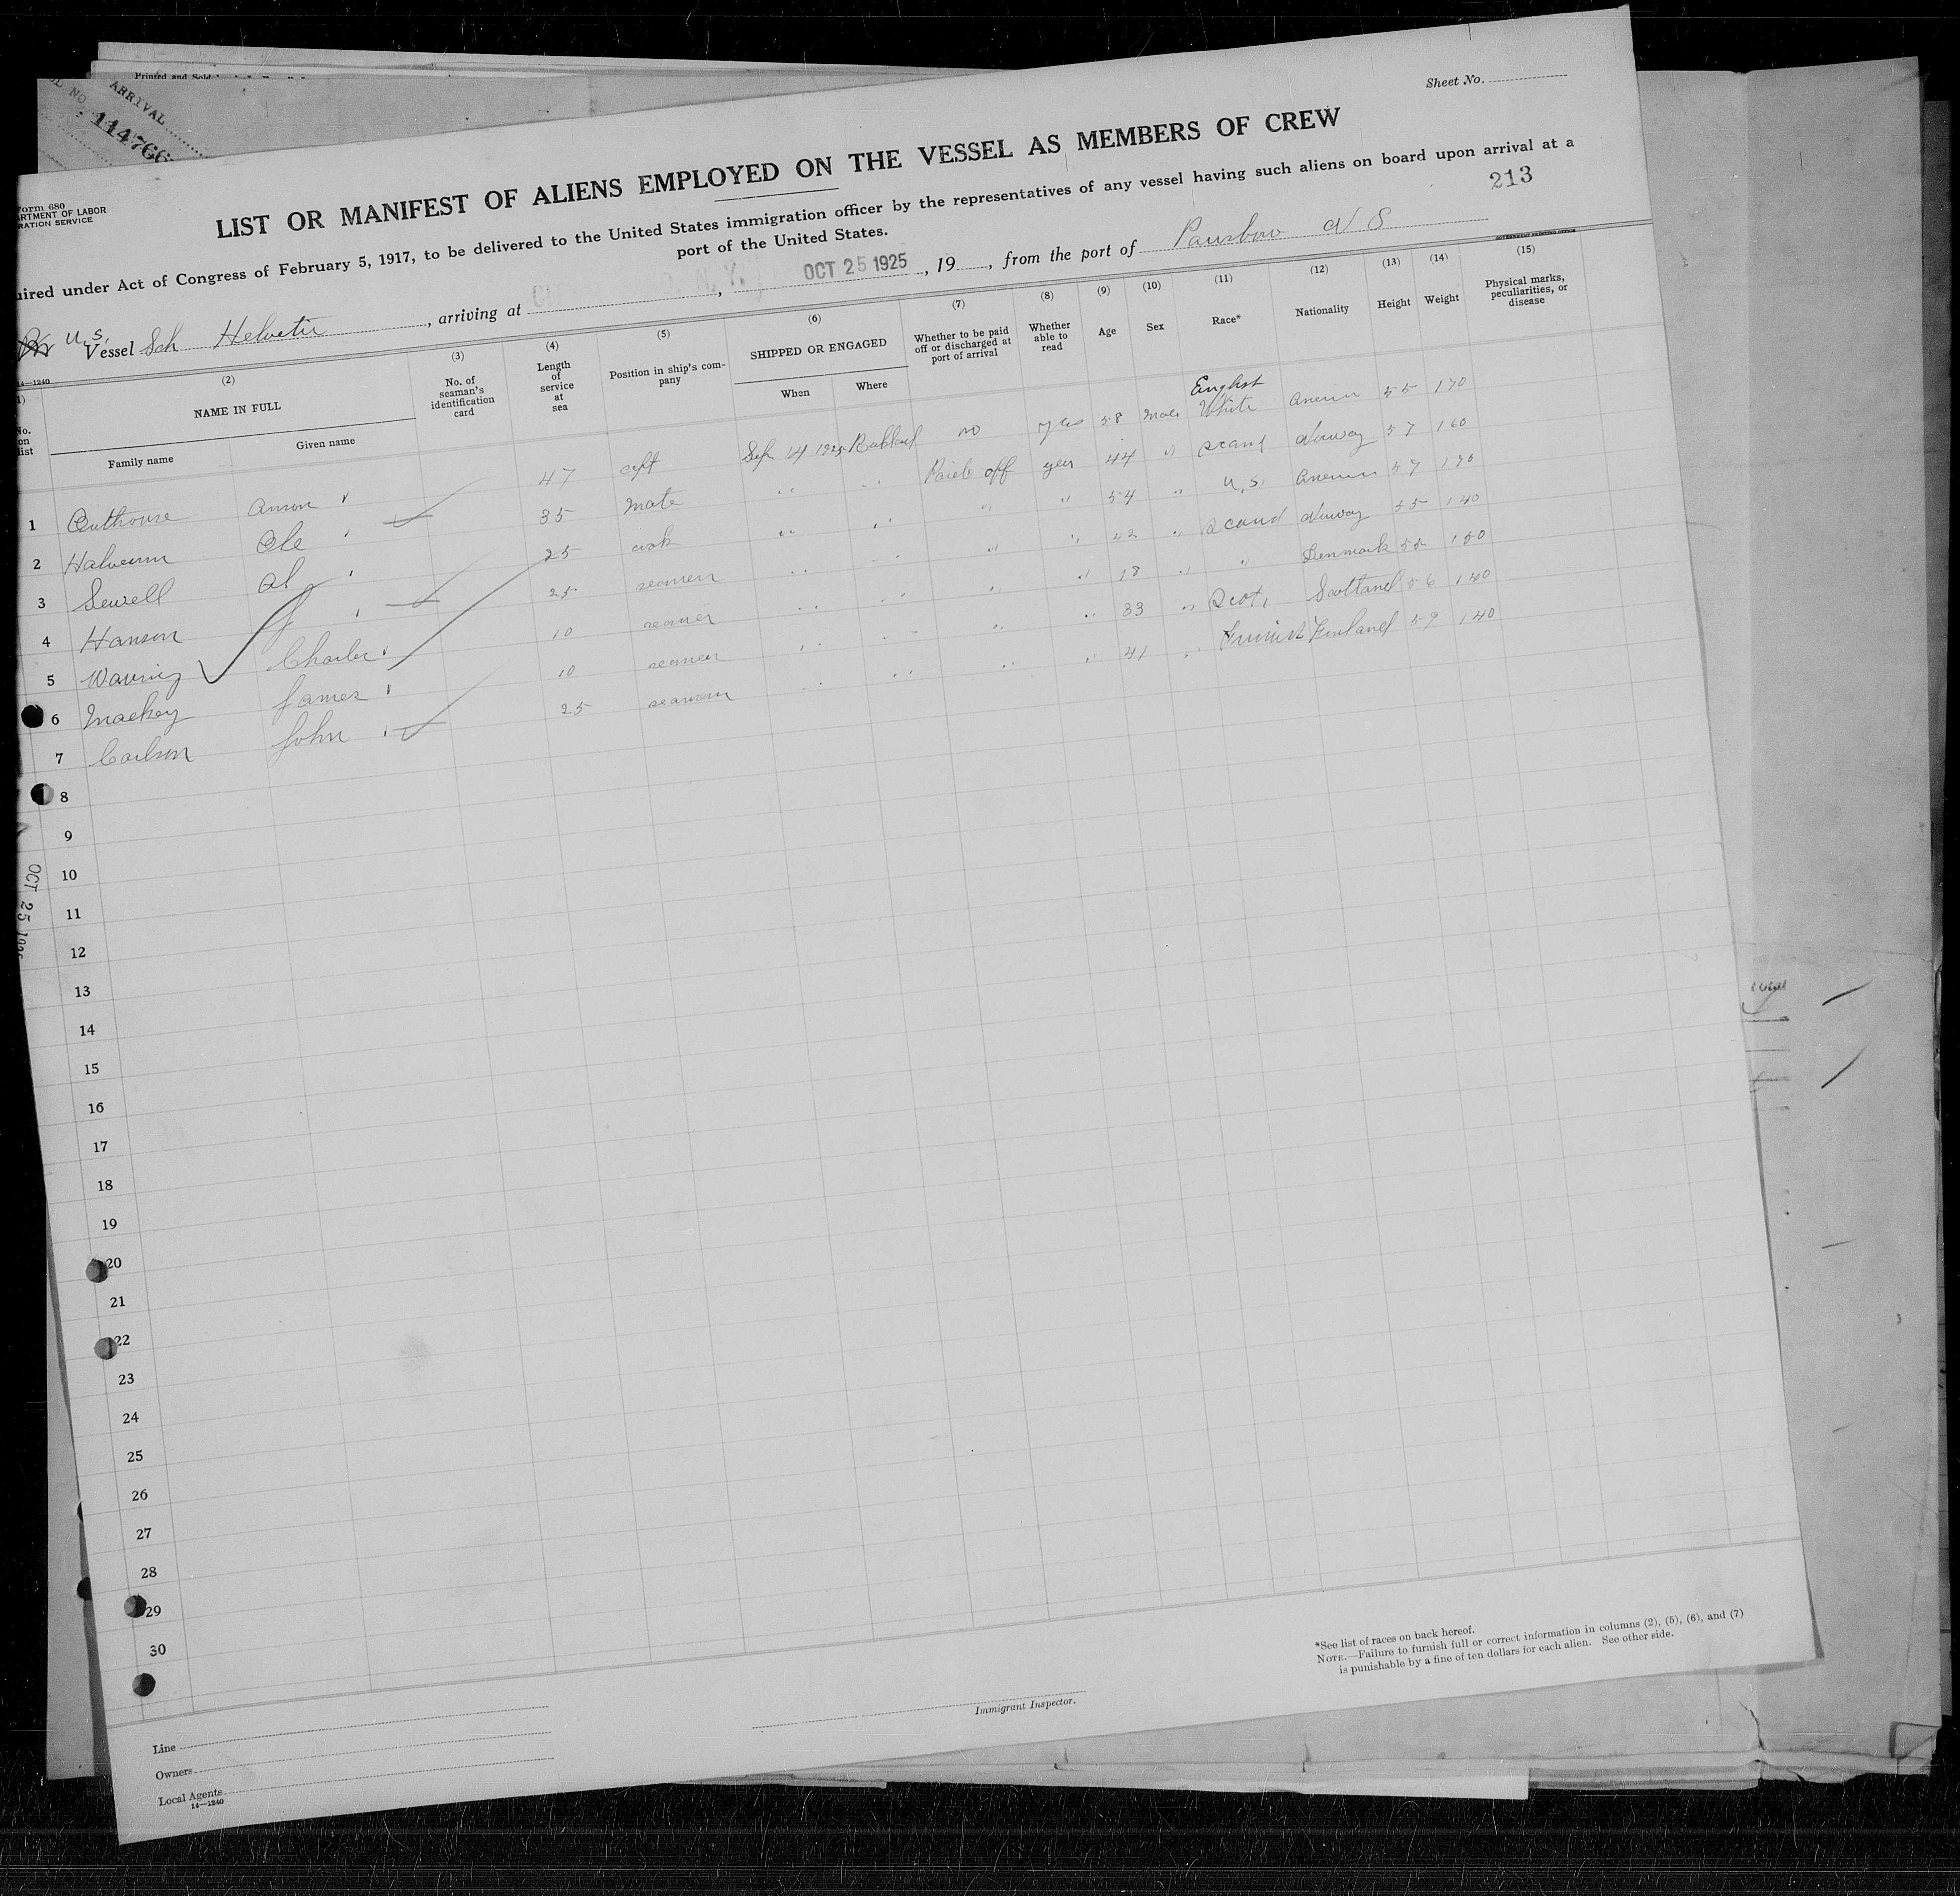 Printed and Sold
ARRIVAL
NO.
114766
Sheet No.
LIST OR MANIFEST OF ALIENS EMPLOYED ON THE VESSEL AS MEMBERS OF CREW
213
Form 680
ARTMENT OF LABOR
RATION SERVICE
uired under Act of Congress of February 5, 1917, to be delivered to the United States immigration officer by the representatives of any vessel having such aliens on board upon arrival at a
port of the United States.
U.S. Vessel Sch Helvetia, arriving at N.Y., OCT 25 1925, 19, from the port of N S
GOVERNMENT PRINTING OFFICE
14—1240
(1) (2) (3) (4) (5) (6) (7) (8) (9) (10) (11) (12) (13) (14) (15)
No. on list
NAME IN FULL
Family name
Given name
No. of seaman's identification card
Length of service at sea
Position in ship's company
SHIPPED OR ENGAGED
When
Where
Whether to be paid off or discharged at port of arrival
Whether able to read
Age
Sex
Race*
Nationality
Height
Weight
Physical marks, peculiarities, or disease
English
1 Outhouse Anson 47 capt Sep 14 1925 no yes 58 male White 55 170
2 Ole 35 mate " " Paid off yes 44 " Scand Norway 57 160
3 Sewell al 25 cook " " " " 54 " U.S. 57 170
4 Hanson J 25 seamen " " " " 42 " Scand Norway 55 140
5 Charles 10 seamen " " " " 18 " " Denmark 55 150
6 Mackey James 10 seamen " " " " 33 " Scot. Scotland 56 140
7 Carlson John 25 seamen " " " " 41 " Finnish Finland 59 140
8
9
10
11
12
13
14
15
16
17
18
19
20
21
22
23
24
25
26
27
28
29
30
OCT 25 1925
Total
*See list of races on back hereof.
NOTE.—Failure to furnish full or correct information in columns (2), (5), (6), and (7)
is punishable by a fine of ten dollars for each alien. See other side.
Immigrant Inspector.
Line
Owners
Local Agents
14—1240